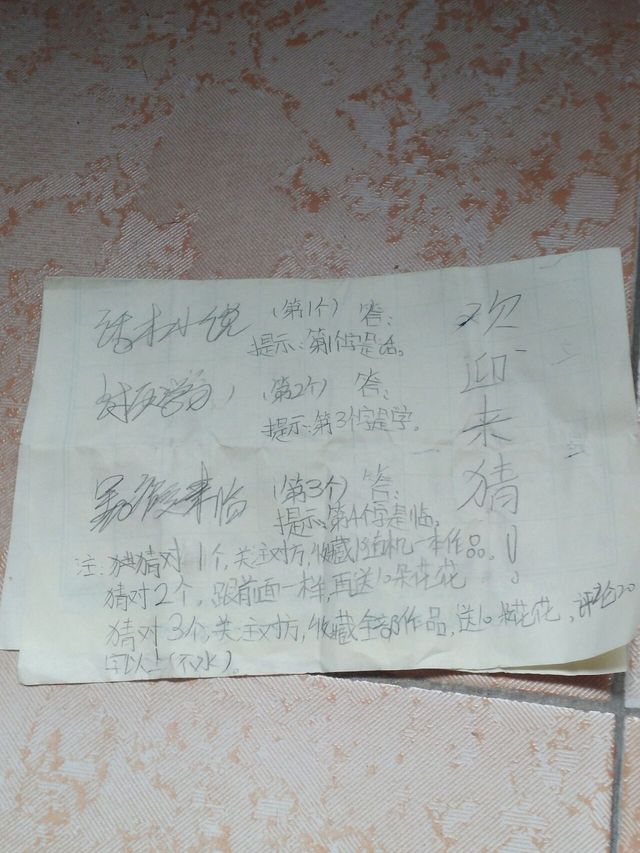 话本小说 （第1个） 答：
提示：第1个字是话。
好好学习 （第2个） 答：
提示：第3个字是学。
来临 （第3个） 答：
提示：第4个字是临。
欢迎来猜！
注：猜猜对1个，关注对方，收藏随机一本作品。
猜对2个，跟前面一样，再送10朵花花
猜对3个，关注对方，收藏全部作品，送10朵花花，评论20
字以上（不水）。